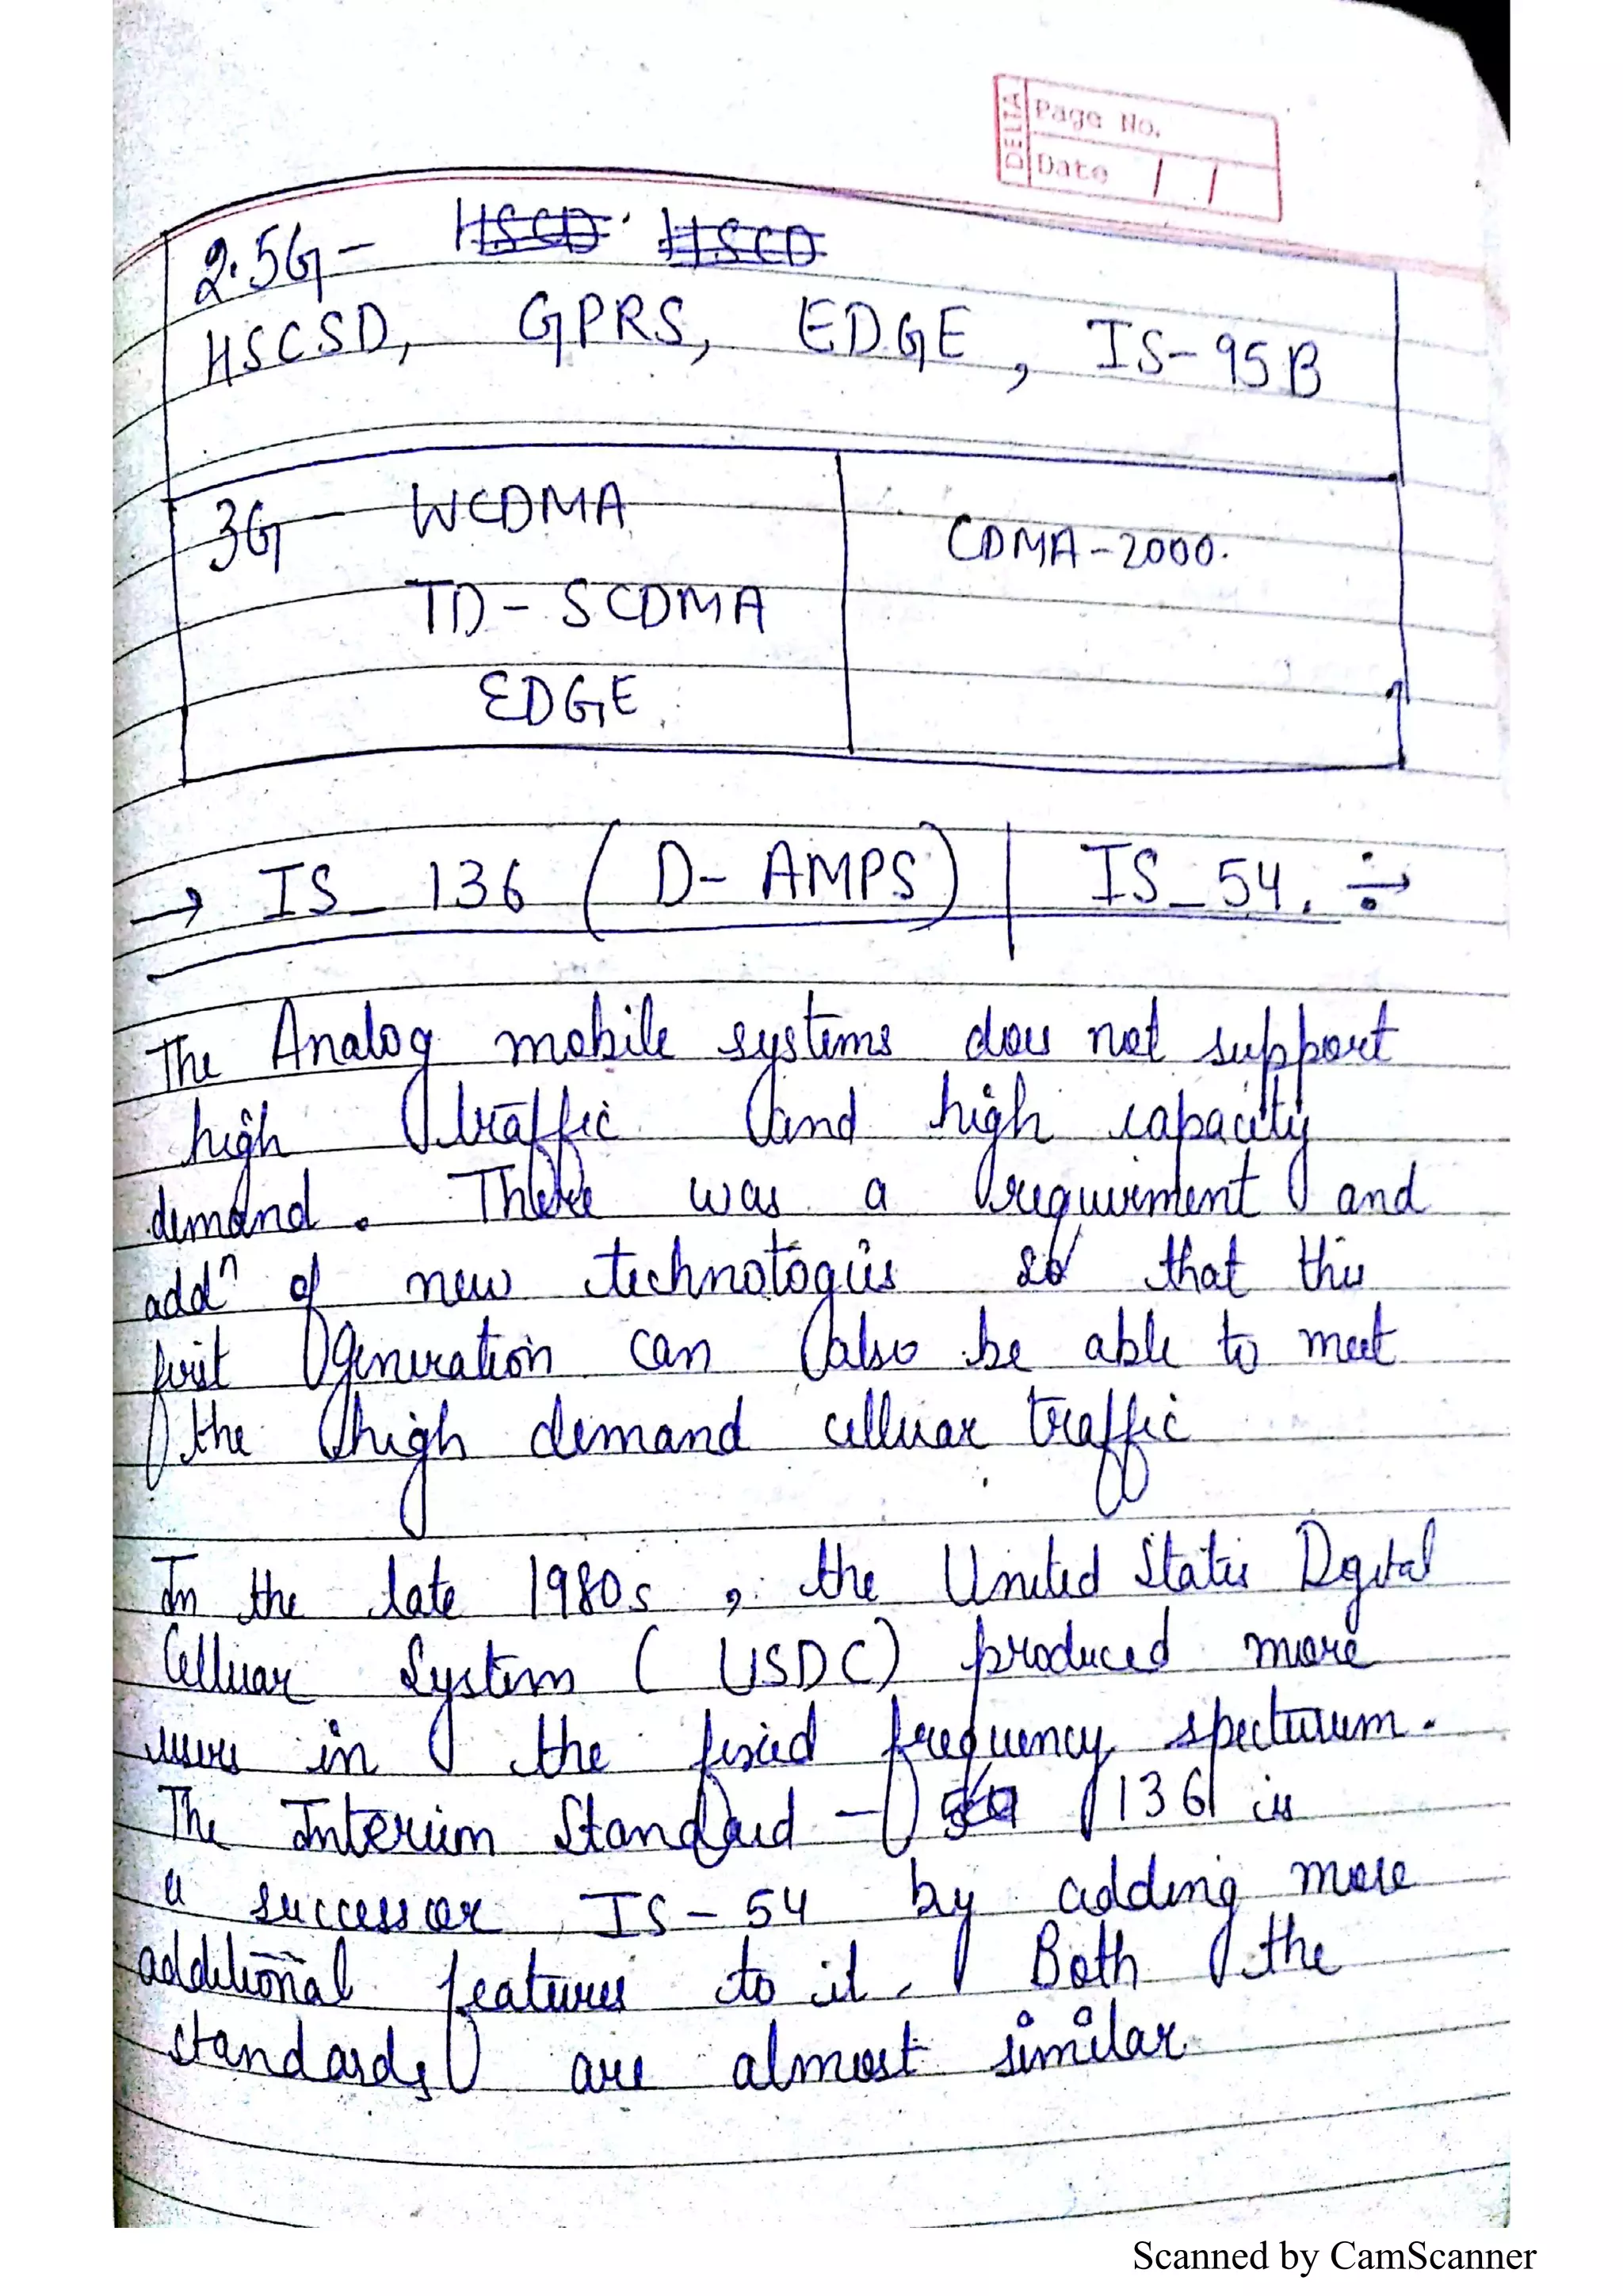 DELTA
Page No.
Date / /
2.5G- HSCD HSCD
HSCSD, GPRS, EDGE, IS-95B
3G - WCDMA
CDMA-2000.
TD-SCDMA
EDGE
→ IS_136 (D-AMPS) | IS_54. ÷→
The Analog mobile systems does not support
high traffic and high capacity
demand. There was a requirment and
addn of new technologies so that this
first generation can also be able to meet
the high demand celluar traffic
In the late 1980s, the United States Dgital
Celluar System (USDC) produced more
users in the fixed frequency specturum.
The Interim Standard - 136 is
a successor IS-54 by adding more
additional features to it. Both the
standards are almost similar
Scanned by CamScanner